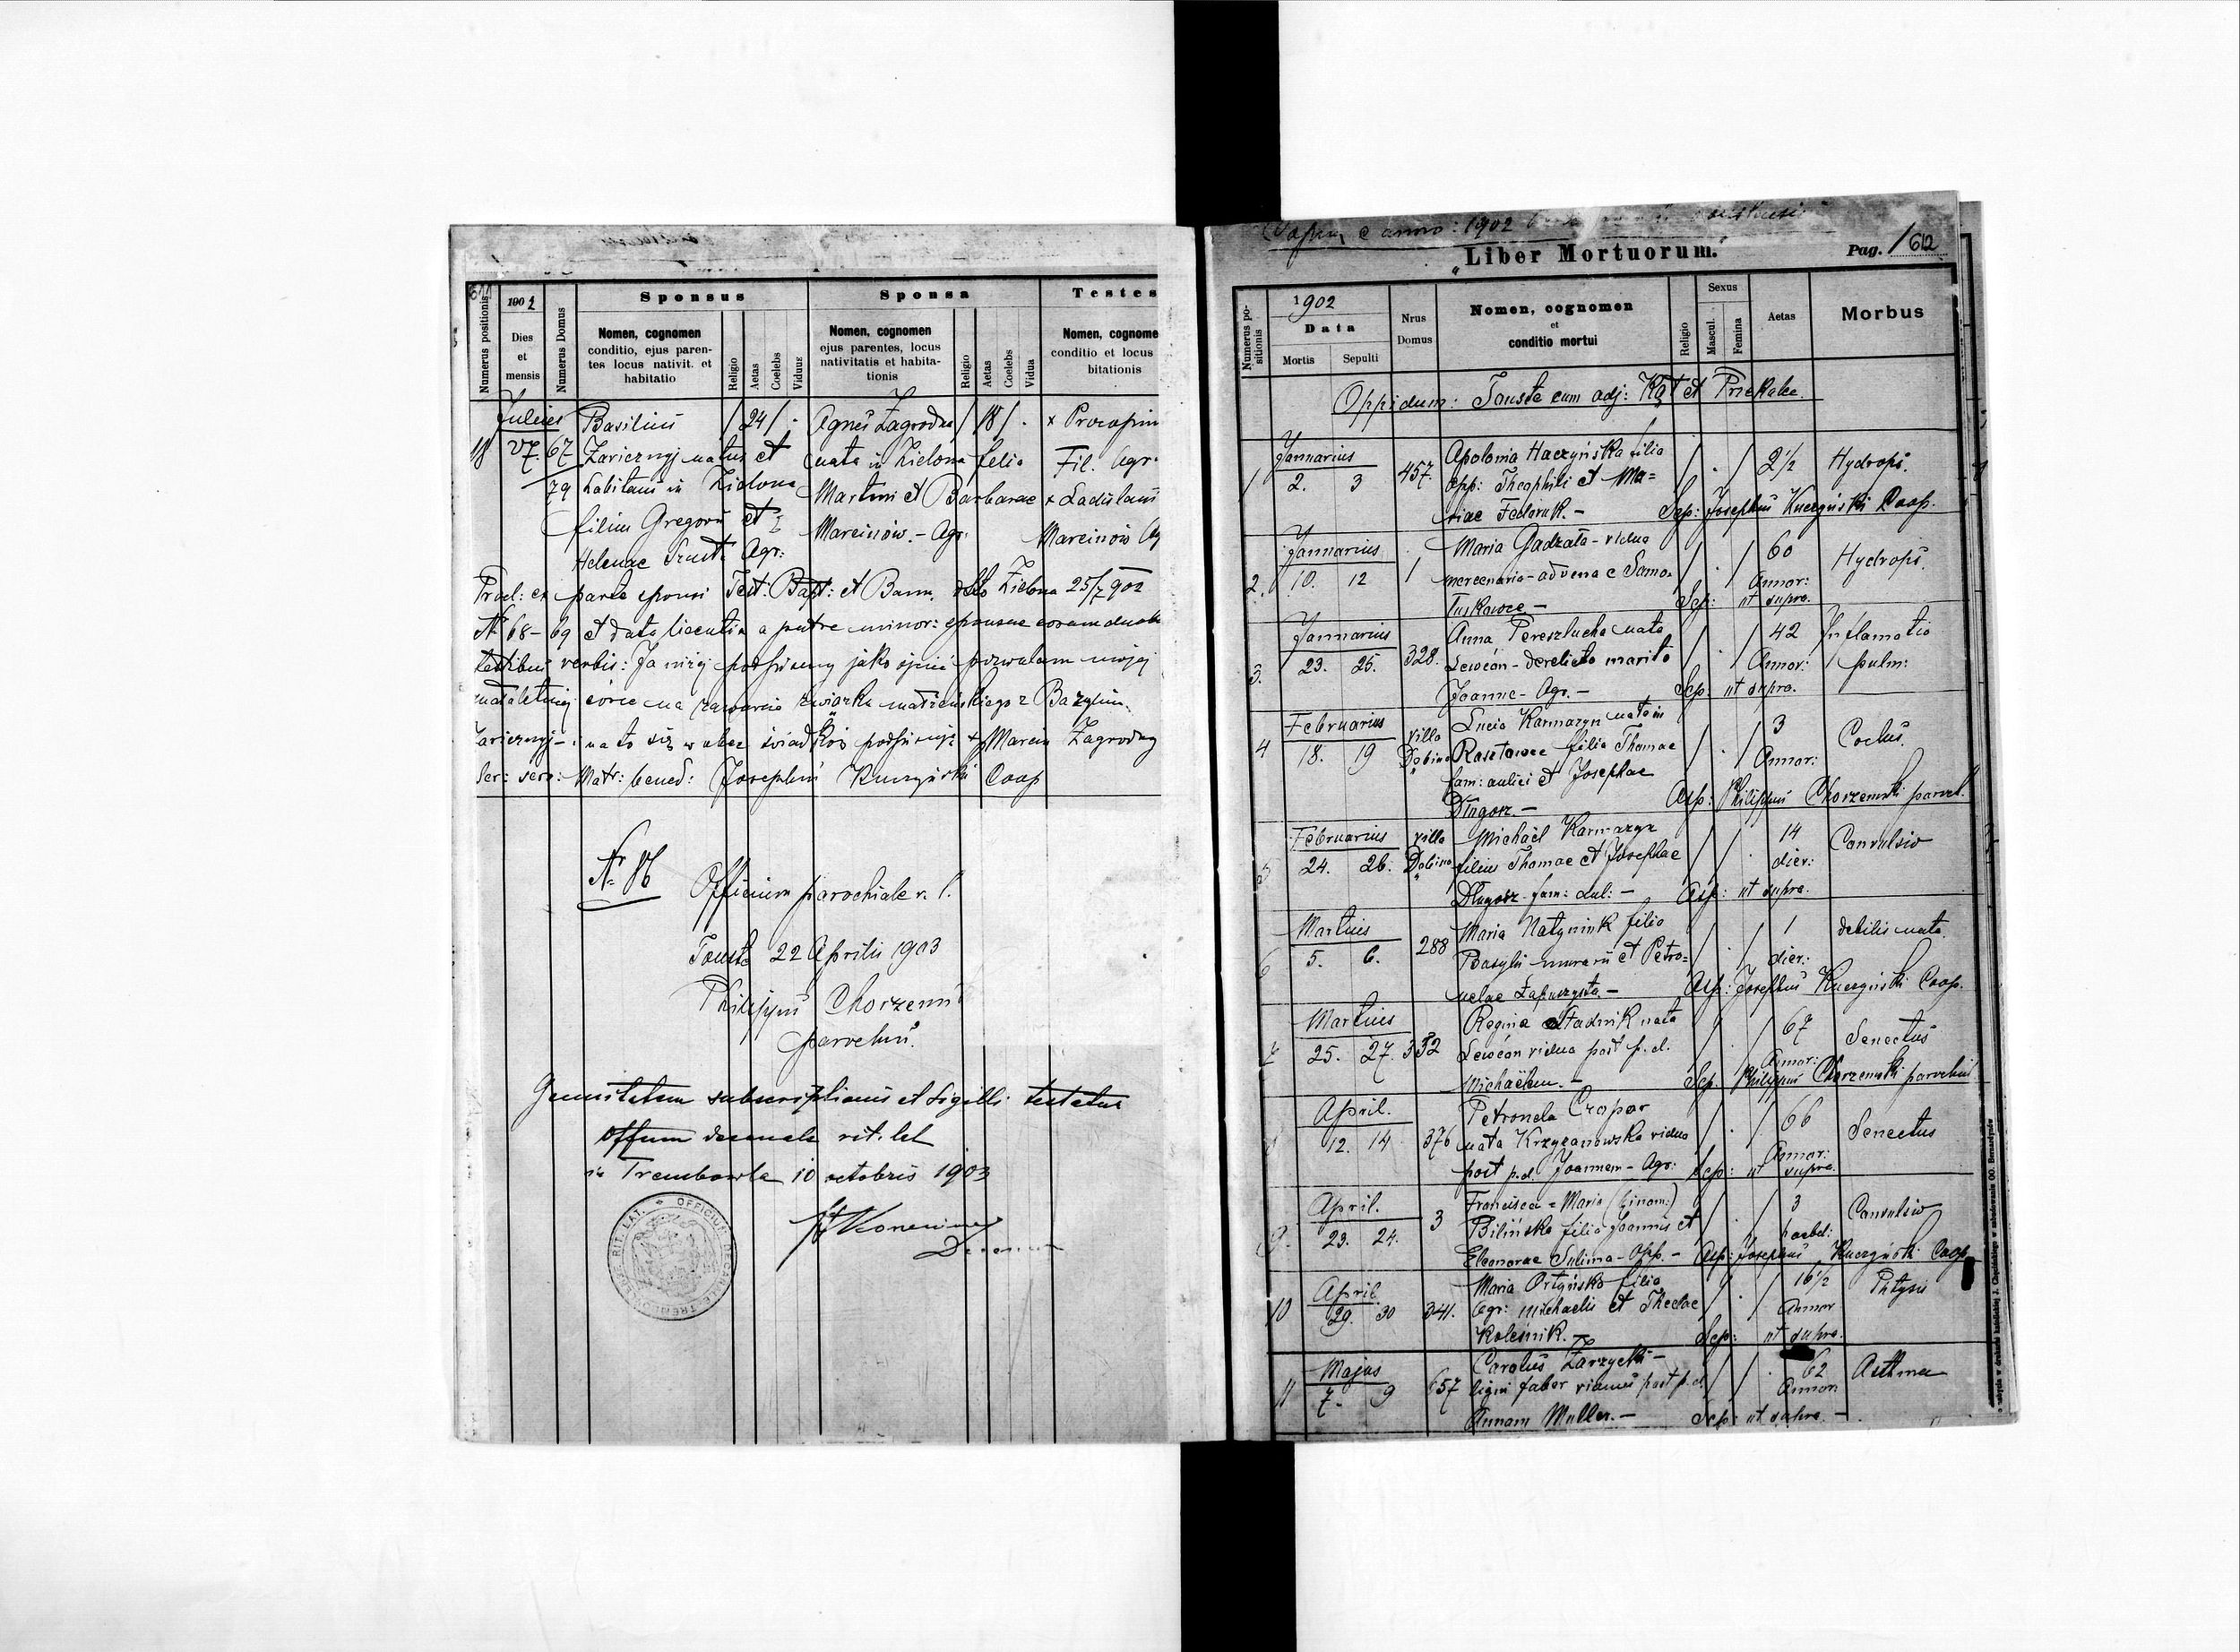 611
1902
Numerus positionis
Dies
et
mensis
Numerus Domus
Sponsus
Nomen, cognomen
conditio, ejus paren-
tes locus nativit. et
habitatio
Religio
Aetas
Coelebs
Viduus
Sponsa
Nomen, cognomen
ejus parentes, locus
nativitatis et habita-
tionis
Religio
Aetas
Coelebs
Vidua
Testes
Nomen, cognome
conditio et locus
bitationis
Julius
18 27. 67
79
Basilius / 24 / .
Zaricznyj natus et
habitans in Zielona
filius Gregorii et
Helenae Agr:
Agnes Zagrodna / 18 / .
nata in Zielona filia
Martini et Barbarae
Marcinów. - Agr.
+ Procopius
Fil. Agr.
+ Ladislaus
Marcinów Ag
Procl: ex parte sponsi Test: Bapt: et Bann. dtto Zielona 25/7 902
Nr 68 - 69 et data licentia a patre minor: sponsae coram duob
testibus verbis: Ja niżej podpisany jako ojciec pozwalam mojej
małoletniej córce na zawarcie związku małżeńskiego z Bazylim
Zaricznyj - i na to się wobec świadków podpisuję + Marcin Zagrodny
Matr: bened: Josephus Kuczyński Coop
Nr 86
Officium parochiale r. l.
Touste 22 Aprilis 1903
Philippus Chorzems
parochus.
Genuitatem subscriptionis et sigilli testatur
Offium decanale rit. lat
in Trembowla 10 octobris 1903
OFFICIUM DECANALE TREMBOVLENSE RIT. LAT.
e anno: 1902
"Liber Mortuorum."
Pag. 1 612
Numerus po-
sitionis
1902
Data
Mortis
Sepulti
Nrus
Domus
Nomen, cognomen
et
conditio mortui
Religio
Sexus
Mascul.
Femina
Aetas
Morbus
Oppidum: Touste cum adj: Kąt et Przekalec.
Januarius
1 2. 3 457.
Apolonia Haczyńska filia
opp: Theophili et Ma=
riae Fedoruk. -
/ . / 2 1/2 Hydrops.
Sep: Josephus Kuczyński Coop.
Januarius
2. 10. 12 1
Maria Gadzała - vidua
mercenaria - advena e Samo
łuskowce -
/ . / 60
Annor:
Hydrops.
Sep: ut supra.
Januarius
3. 23. 25. 328.
Anna Pereszlucha nata
Lewcón - derelicta marito
Joanne - Agr. -
/ . / 42
Annor:
Inflamatio
pulm:
Sep: ut supra.
Februarius
4 18. 19
villa
Dębina
Lucia Karmazyn nata in
Rasztowce filia Thomae
fam: aulici et Josephae
Długosz. -
/ . / 3
Annor:
Asp: Philippus Chorzemski paroch.
Februarius
5 24. 26.
villa
Dębina
Michaël Karmazyn
filius Thomae et Josephae
Długosz fam: aul: -
/ / . 14
dier:
Convulsio
Asp: ut supra.
Martius
6 5. 6. 288
Maria Natyniuk filia
Basylii murarii et Petro=
nelae -
/ . / 1
dier:
debilis nata
Asp: Josephus Kuczyński Coop.
Martius
7 25. 27. 332
Regina Stadnik nata
Lewcón vidua post p. d.
Michaëlem. -
/ . / 67
Annor:
Senectus
Sep. Philippus Chorzemski parochus
April.
8 12. 14 376
Petronela Czopor
nata Krzyżanowska vidua
post p. d. Joannem - Agr:
/ . / 66
Annor:
Senectus
Sep: ut supra.
April.
9. 23. 24. 3
Francisca = Maria (binom:)
Bilińska filia Joannis et
Eleonorae Sulima - Opp. -
/ . / 3
hebd:
Convulsio
Asp: Josephus Kuczyński Coop
April
10 29. 30 341.
Maria Ortyńska filia
agr: Michaelis et Theclae
Koleśnik. -
/ . / 16 1/2
Annor
Phtysis
Sep: ut supra.
Majus
11 7. 9 657
Carolus Zarzycki -
ligni faber viduus post p. d.
Annam Muller. -
/ / . 62
Annor:
Asthma
Sep: ut supra. -